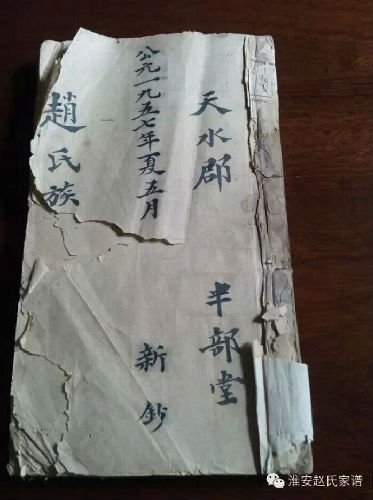 天水郡 半部堂
公元一九五七年夏五月 新鈔
趙氏族
淮安赵氏家谱